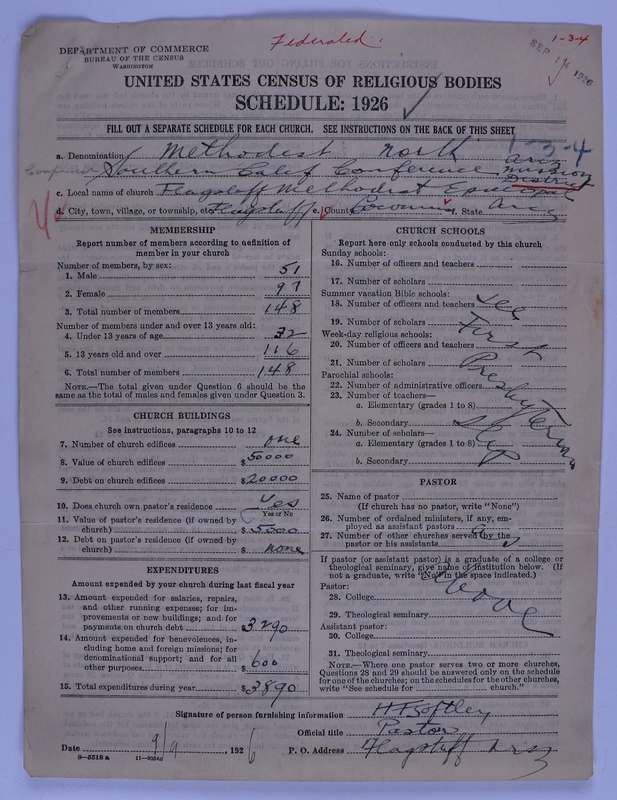 Federated.
1-3-4
SEP 1926
DEPARTMENT OF COMMERCE
BUREAU OF THE CENSUS
WASHINGTON
UNITED STATES CENSUS OF RELIGIOUS BODIES
SCHEDULE: 1926
FILL OUT A SEPARATE SCHEDULE FOR EACH CHURCH. SEE INSTRUCTIONS ON THE BACK OF THIS SHEET
1-3-4
a. Denomination Methodist North
Southern Calif Conference Ariz Mission District
c. Local name of church Flagstaff Methodist Episcopal
d. City, town, village, or township, etc. Flagstaff e. County Coconino f. State Ariz
MEMBERSHIP
Report number of members according to definition of
member in your church
Number of members, by sex:
1. Male 51
2. Female 97
3. Total number of members 148
Number of members under and over 13 years old:
4. Under 13 years of age 32
5. 13 years old and over 116
6. Total number of members 148
NOTE.—The total given under Question 6 should be the
same as the total of males and females given under Question 3.
CHURCH BUILDINGS
See instructions, paragraphs 10 to 12
7. Number of church edifices one
8. Value of church edifices $50000
9. Debt on church edifices $20000
10. Does church own pastor's residence Yes
Yes or No
11. Value of pastor's residence (if owned by
church) $5000
12. Debt on pastor's residence (if owned by
church) $ none
EXPENDITURES
Amount expended by your church during last fiscal year
13. Amount expended for salaries, repairs,
and other running expenses; for im-
provements or new buildings; and for
payments on church debt $3290
14. Amount expended for benevolences, in-
cluding home and foreign missions; for
denominational support; and for all
other purposes $600
15. Total expenditures during year $3890
CHURCH SCHOOLS
Report here only schools conducted by this church
Sunday schools:
16. Number of officers and teachers
17. Number of scholars
Summer vacation Bible schools:
18. Number of officers and teachers See
19. Number of scholars First
Week-day religious schools:
20. Number of officers and teachers
21. Number of scholars Presbyterian
Parochial schools:
22. Number of administrative officers
23. Number of teachers—
a. Elementary (grades 1 to 8)
b. Secondary
24. Number of scholars—
a. Elementary (grades 1 to 8)
b. Secondary
PASTOR
25. Name of pastor
(If church has no pastor, write "None")
26. Number of ordained ministers, if any, em-
ployed as assistant pastors
27. Number of other churches served by the
pastor or his assistants
If pastor (or assistant pastor) is a graduate of a college or
theological seminary, give name of institution below. (If
not a graduate, write "No" in the space indicated.)
Pastor:
28. College
29. Theological seminary
Assistant pastor:
30. College
31. Theological seminary
NOTE.—Where one pastor serves two or more churches,
Questions 28 and 29 should be answered only on the schedule
for one of the churches; on the schedules for the other churches,
write "See schedule for church."
Signature of person furnishing information
Official title Pastor
Date 9/9, 1926 P. O. Address Flagstaff Ariz
8—5518 a